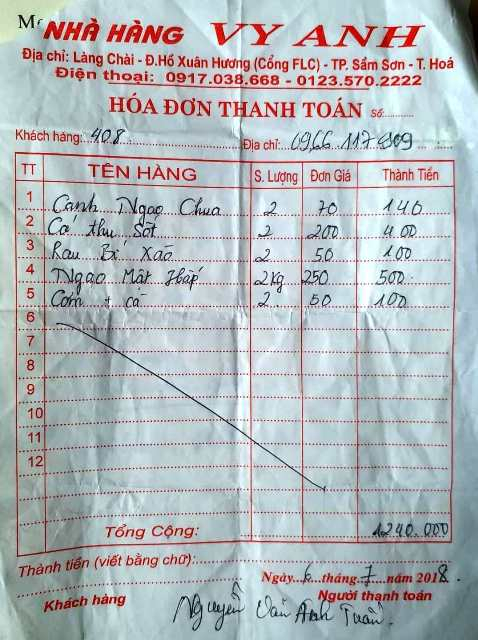 NHÀ HÀNG VY ANH
Địa chỉ: Làng Chài - Đ.Hồ Xuân Hương (Cổng FLC) - TP. Sầm Sơn - T. Hoá
Điện thoại: 0917.038.668 - 0123.570.2222
HÓA ĐƠN THANH TOÁN Số:
Khách hàng: 408 Địa chỉ: 0966 117
TT TÊN HÀNG S. Lượng Đơn Giá Thành Tiền
1 Canh Ngao Chua 2 70 140
2 Cá thu Sốt 2 200 400
3 Rau Bí Xào 2 50 100
4 Ngao Mật Hấp 2kg 250 500
5 Cơm + cà 2 50 100
6
7
8
9
10
11
12
Tổng Cộng: 1240.000
Thành tiền (viết bằng chữ):
Ngày 6 tháng 7 năm 2018
Khách hàng Người thanh toán
Nguyễn Văn Anh Tuấn